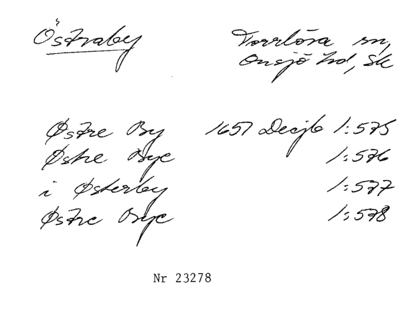 Östraby Torrlösa sn,
Onsjö hd, Sk
Østre By 1651 Decjb 1:575
Østre Bye 1:576
i Østerby 1:577
Østre Bye 1:578
Nr 23278